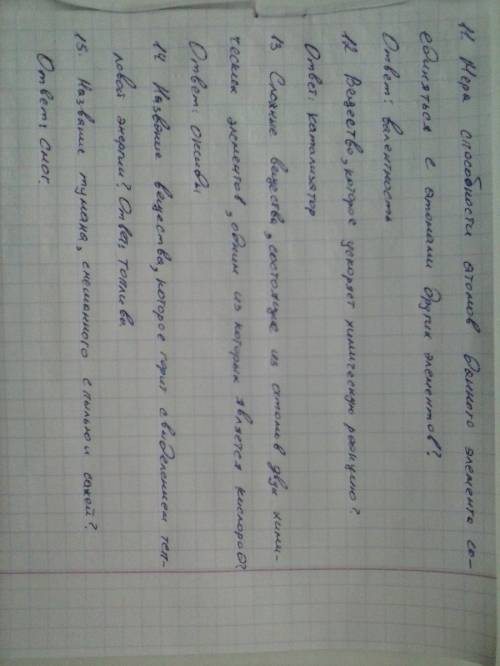 11. Мера способности атомов данного элемента со-
единятся с атомами других элементов?
Ответ: валентность
12 Вещество, которое ускоряет химическую реакцию?
Ответ: катализатор
13 Сложные вещества, состоящие из атомов двух хими-
ческих элементов, одним из которых является кислород?
Ответ: оксиды
14 Название вещества, которое горит с выделением теп-
ловой энергии? Ответ: топливо
15. Название тумана, смешанного с пылью и сажей?
Ответ: смог.